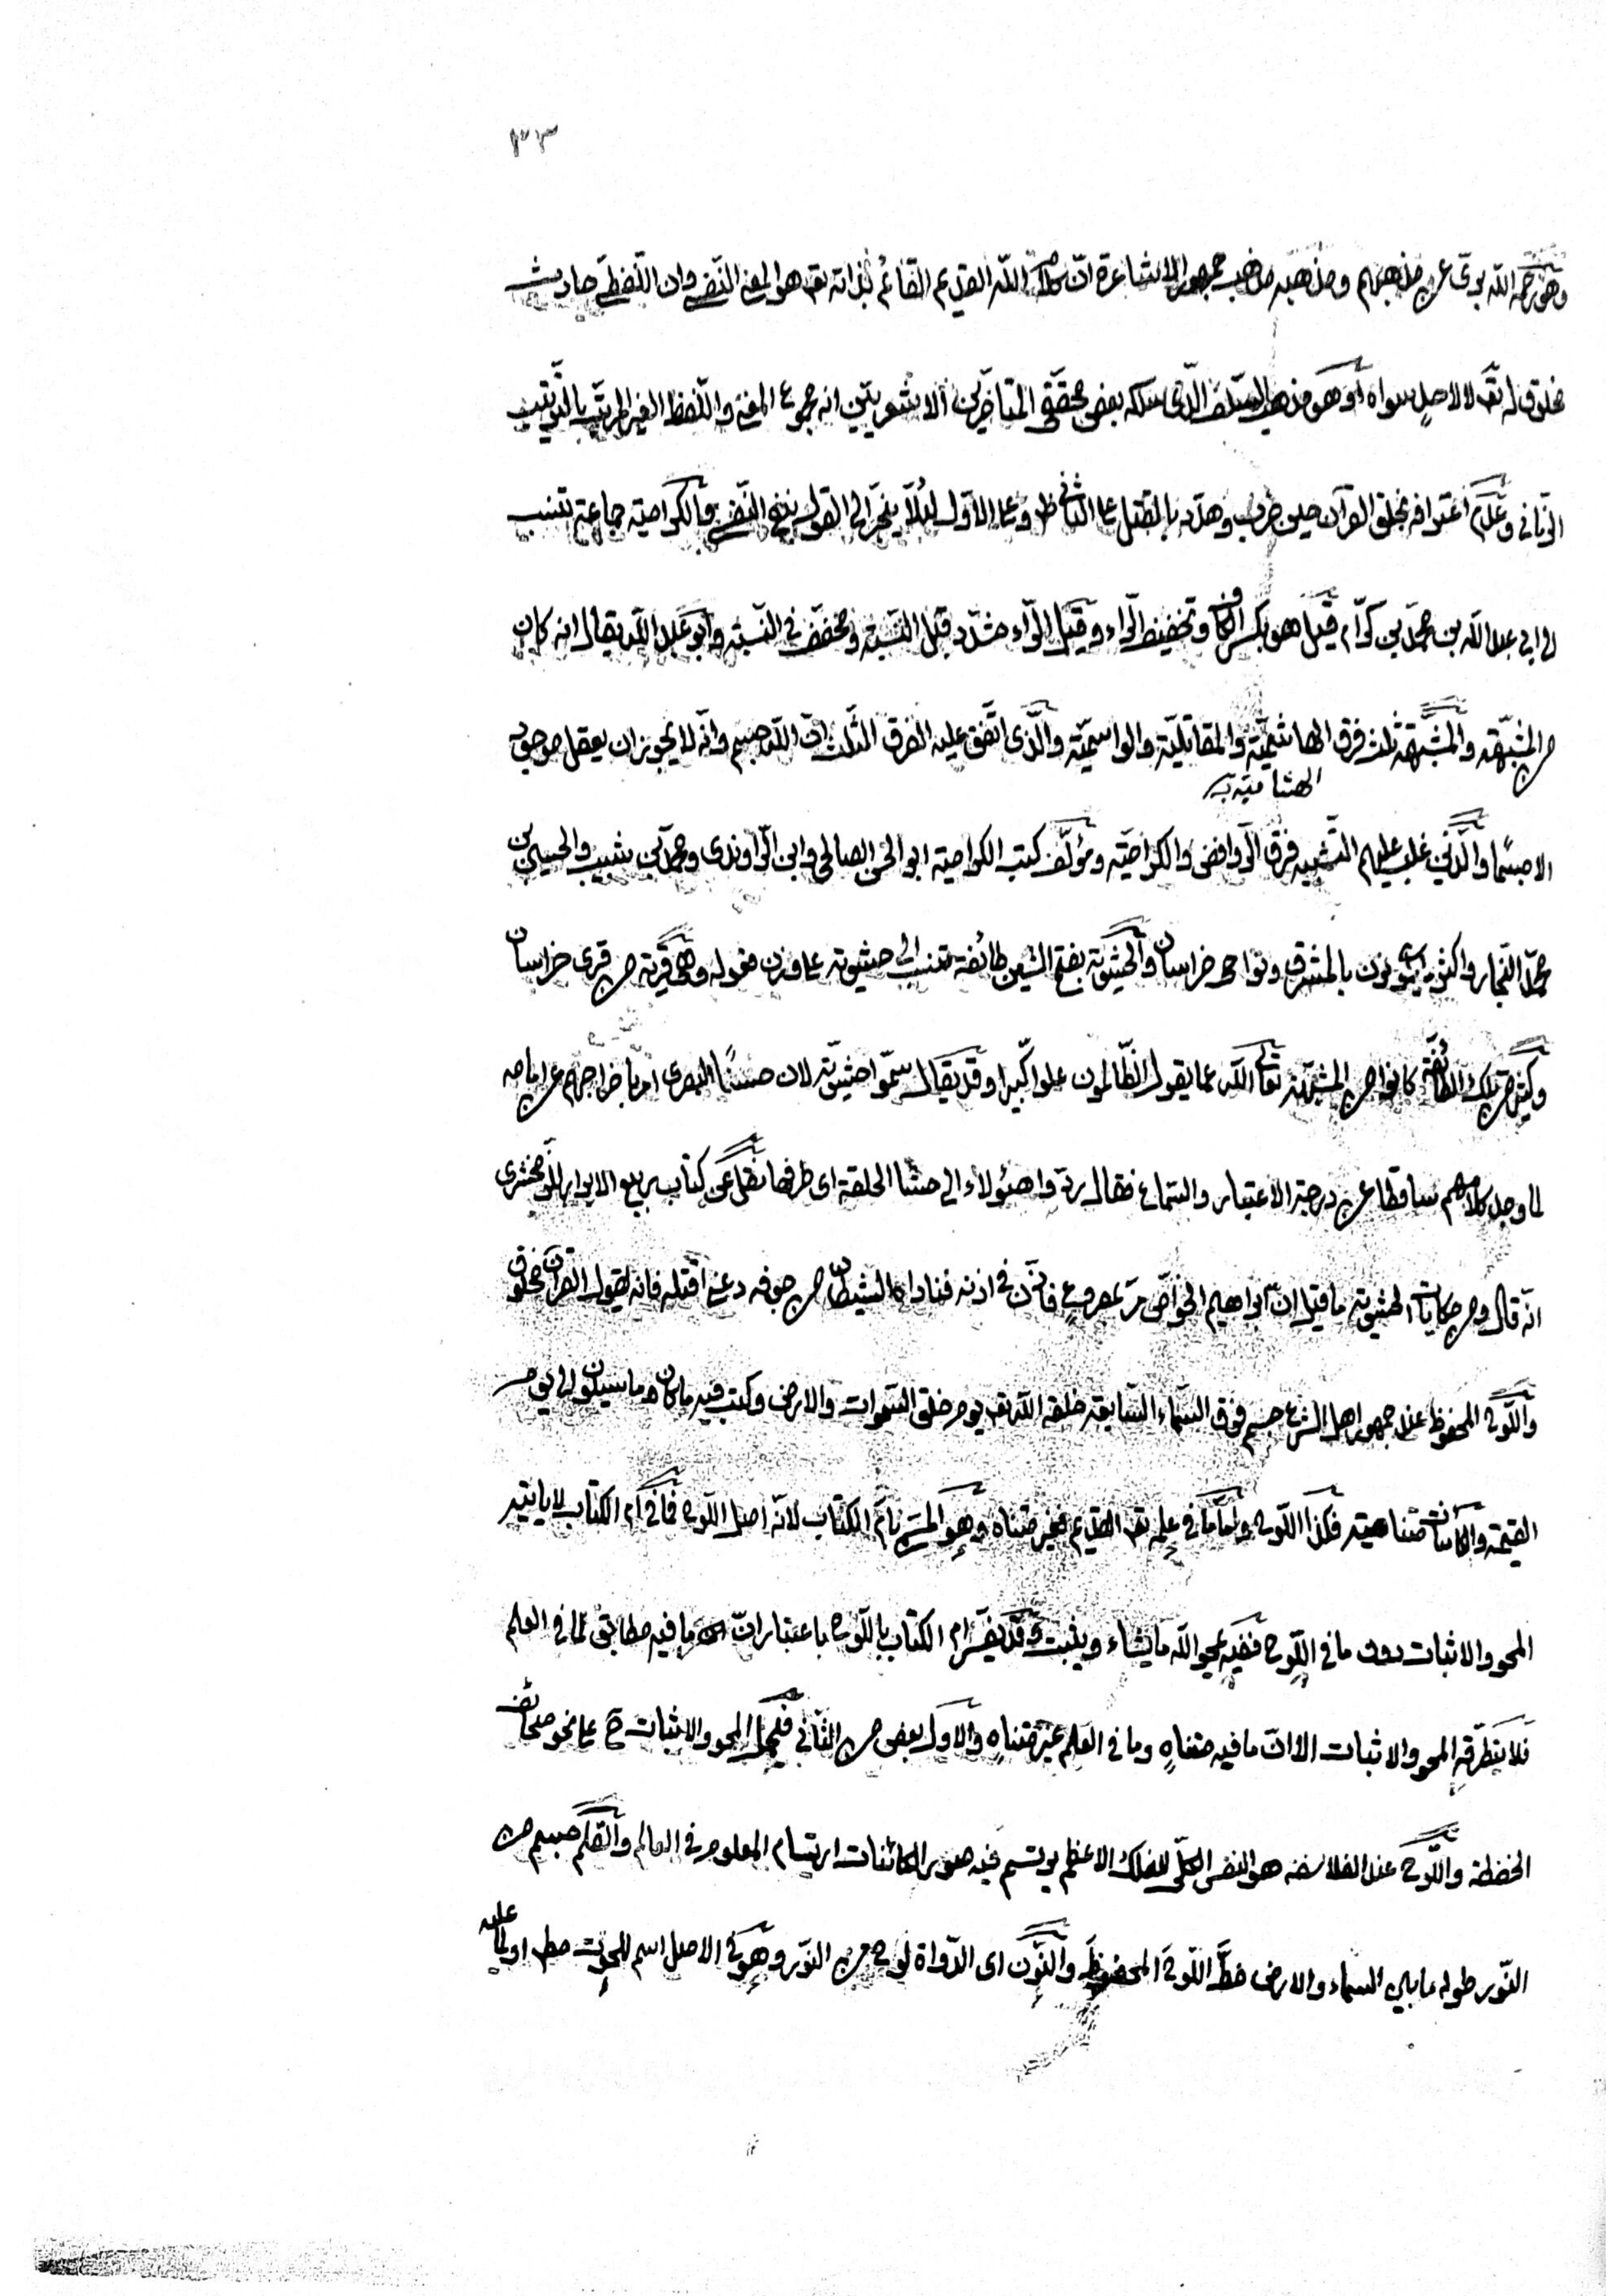 ٣٣
وهو رحمه الله برئ عن مذهبهم ومذهبه مذهب جمهور الاشاعرة ان كلام الله القديم القائم بذاته تعـ هو المعنى النفسى وان اللفظى حادث
مخلوق له تعـ لا لاصل سواه او هو مذهب السلف الذى سلكه بعض محققى المتاخرين الاشعريين انه مجموع المعنى واللفظ الغير المرتب بالترتيب
الزمانى وعدم اعترافه بخلق القرآن حين ضرب وهدد بالقتل على الثانى ظ وعلى الاول لئلا ينجر الى القول بنفى النفسى والكرامية جماعة تنسب
الى ابى عبد الله بن محمد بن كرام قيل هو بكسر الكاف وتخفيف الراء وقيل الراء مشدد قبل النسبة ومخفف فى النسبة وابو عبد الله يقال انه كان
من المشبهة والمشبهة ثلث فرق الهاشمية والمقاتلية والواسمية والذى اتفق عليه الفرق الثلث ان الله جسم وانه لا يجوز ان يعقل موجود
الهشامية
الا جسما والذين غلب عليهم التشبيه فرق الروافض والكرامية ومؤلف كتب الكرامية ابو الحسن الصالحى وابن الراوندى ومحمد بن شبيب والحسين بن
محمد النجار واكثرهم يكونون بالمشرق ونواحى خراسان والحشوية بفتح الشين طائفة تنسب الى حشوية على وزن فعولة وهى قرية من قرى خراسان
وكثير من تلك الطائفة كانوا من المشبهة تعالى الله عما يقول الظالمون علوا كبيرا وقد يقال سموا حشوية لان حسنا البصرى امر باخراجهم عن امامه
لما وجد كلامهم ساقطا عن درجة الاعتبار والسماع فقال ردوا هئولاء الى حشا الحلقة اى طرفها نقل عن كتاب ربيع الابرار للزمخشرى
انه قال ومن حكايات الحشوية ما قيل ان ابراهيم الخواص مر بمصروع فاذن فى اذنه فناداه الشيطان من جوفه دعنى اقتله فانه يقول القرآن مخلوق
واللوح المحفوظ عند جمهور اهل الشرع جسم فوق السماء السابعة خلقه الله تعـ يوم خلق السموات والارض وكتب فيه ما كان وما سيكون الى يوم
القيمة والكائنات متناهية فكذا اللوح واما ما فى علمه تعـ القديم فغير متناه وهو المسمى بام الكتاب لانه اصل اللوح فما فى ام الكتاب لا ياتيه
المحو والاثبات دون ما فى اللوح ففيه يمحو الله ما يشاء ويثبت وقد يفسر ام الكتاب باللوح باعتبار ان ما فيه مطابق لما فى العلم
فلا يتطرقه المحو والاثبات الا ان ما فيه متناه وما فى العلم غير متناه والاول بعض من الثانى فيحمل المحو والاثبات ح على نحو صحائف
الحفظة واللوح عند الفلاسفة هو النفس الكلى للفلك الاعظم يرتسم فيه صور الكائنات ارتسام المعلوم فى العالم والقلم جسم من
النور طوله ما بين السماء والارض خط اللوح المحفوظ والنون اى الدواة لوح من النور وهو فى الاصل اسم للحوت مطـ او لما عليه